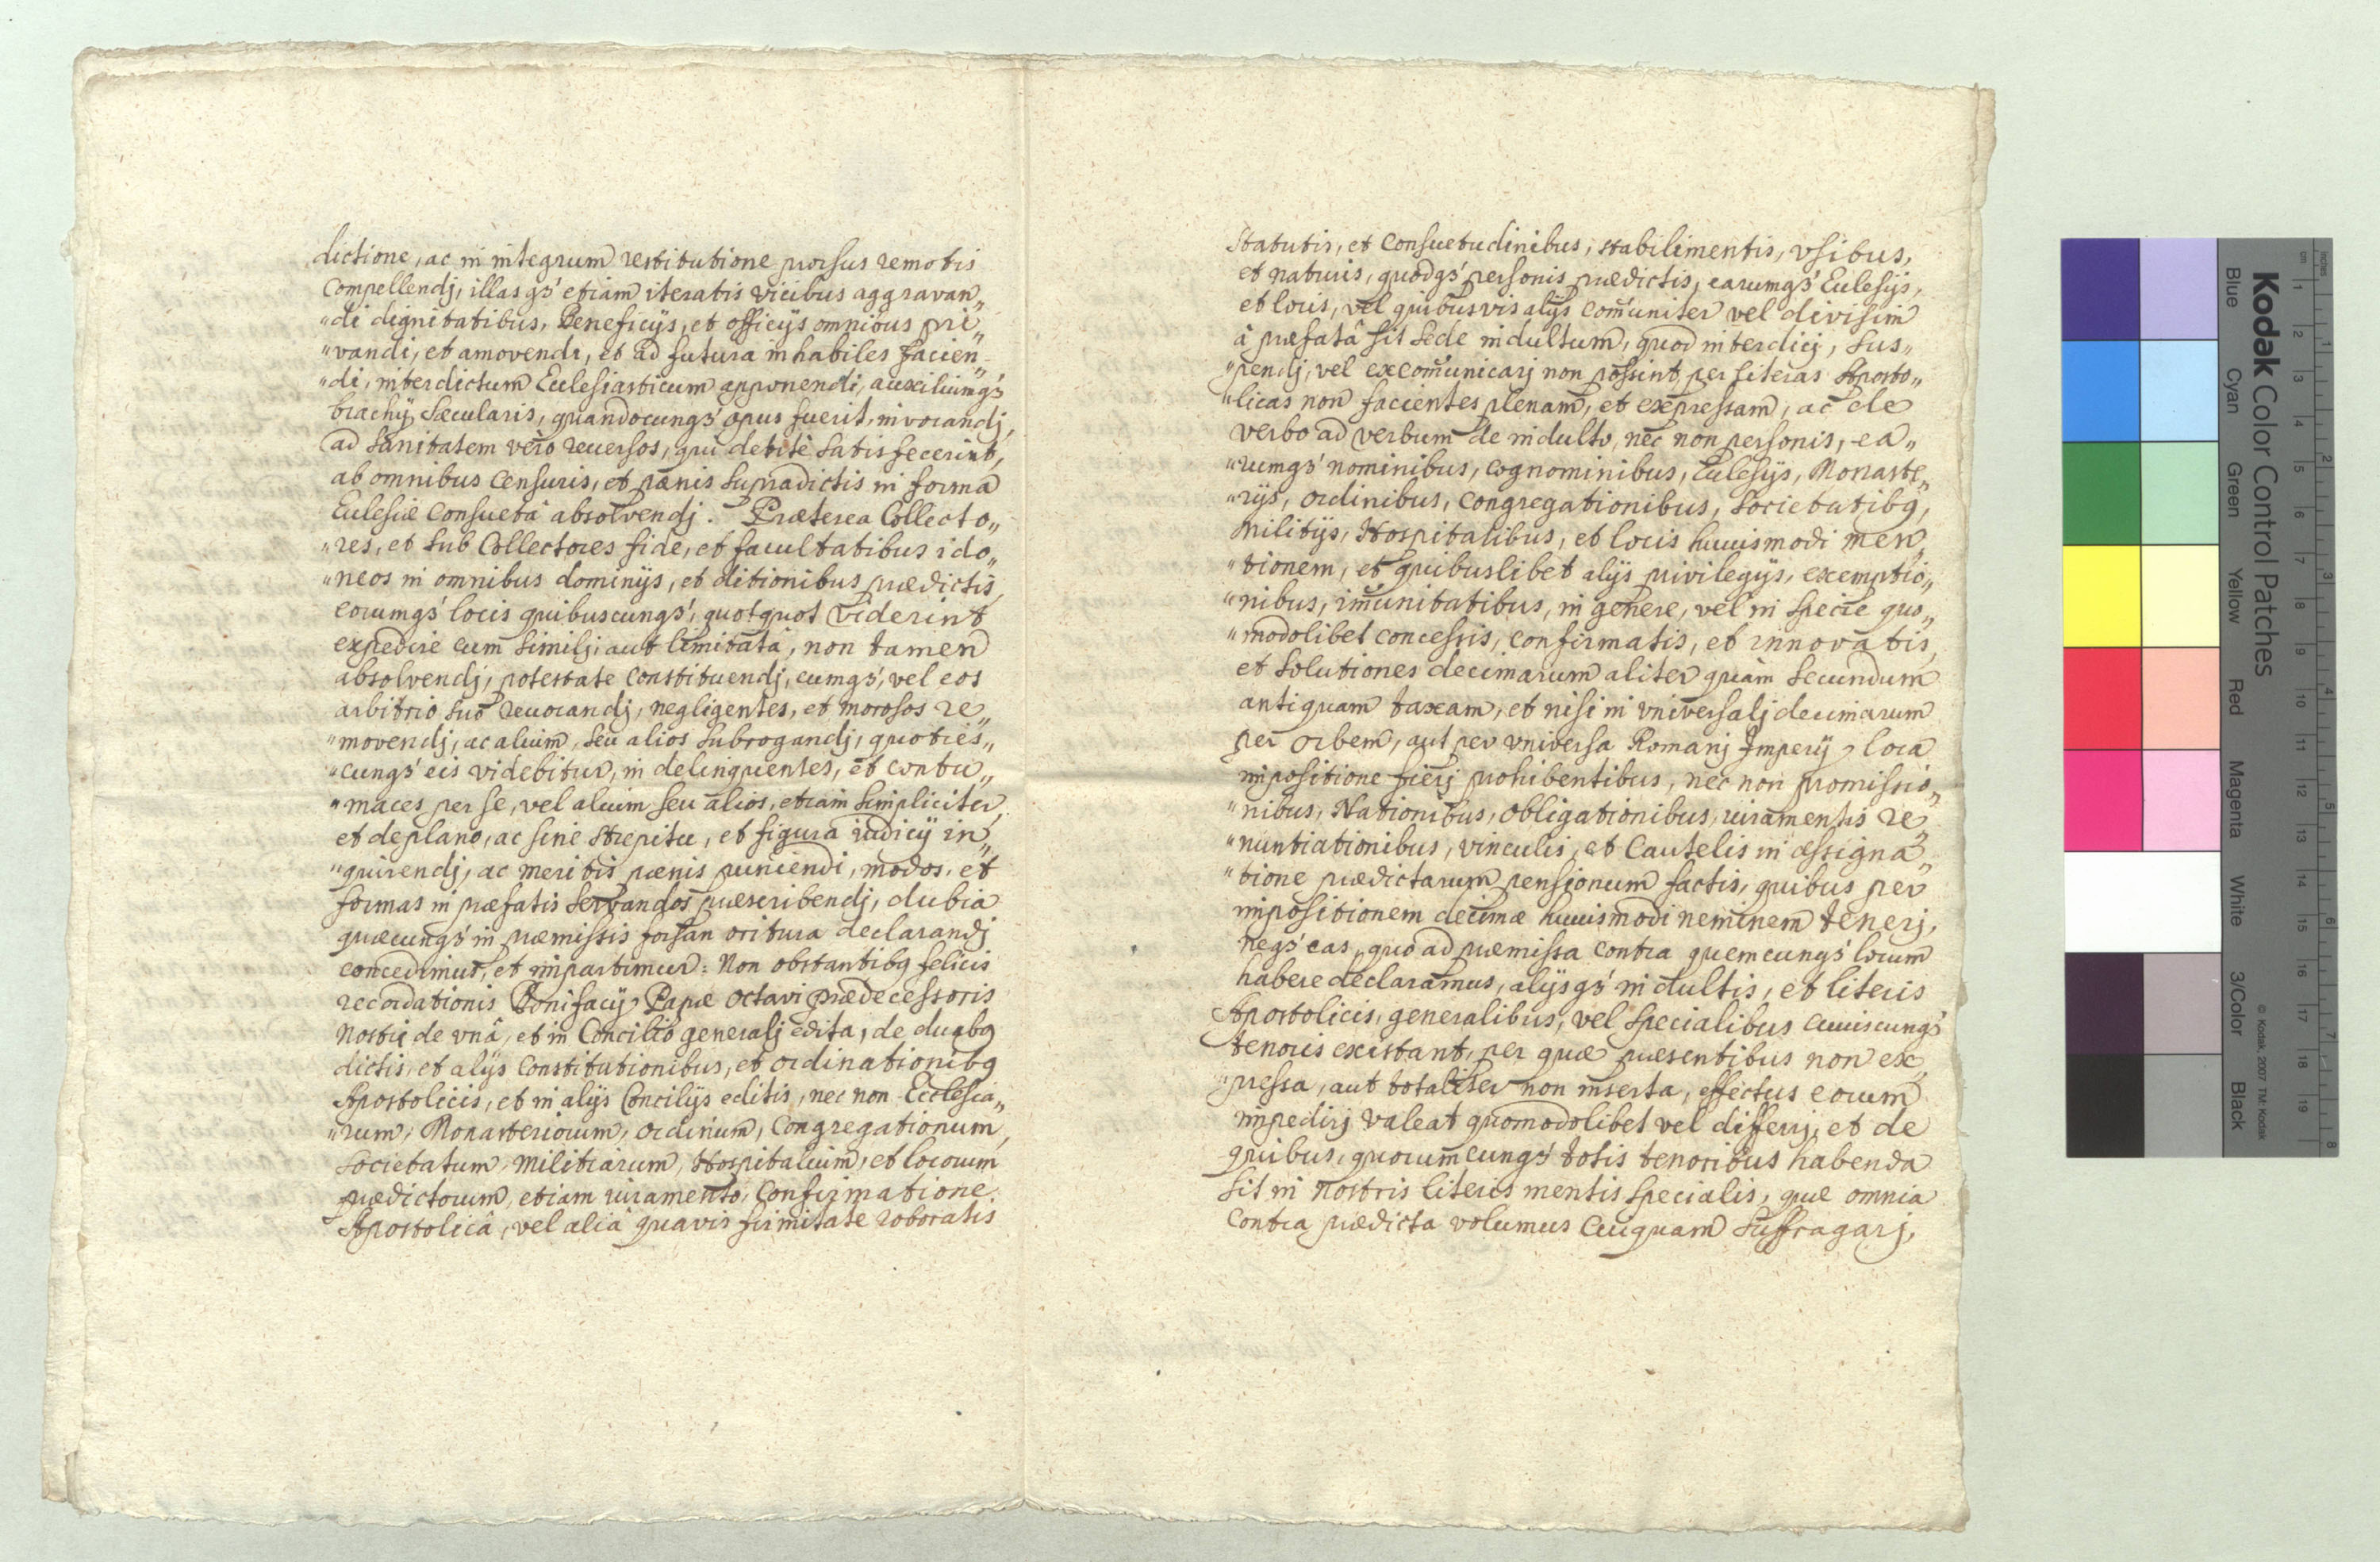 dictione, ac in integrum restitutione prorsus remotis
compellendj, illasqs' etiam iteratis vicibus aggravan„
„di dignitatibus, Beneficijs, et officijs omnibus pri„
„vandi, et amovendi, et ad futura inhabiles facien„
„di, interdictum Ecclesiasticum apponendi, auxiliumqs'
brachij sæcularis, quandocunqs' opus fuerit, invocandj,
ad sanitatem vero reversos, qui debite satisfecerint,
ab omnibus Censuris, et pænis supradictis in forma
Ecclesiæ Consueta absolvendj. Præterea Collecto„
„res, et sub Collectores fide, et facultatibus ido„
„neos in omnibus dominijs, et ditionibus prædictis,
eorumqs' locis quibuscunqs', quotquot viderint
expedire cum similj aut limitatâ, non tamen
absolvendj, potestate constituendj, eumqs', vel eos
arbitrio suo revocandj, negligentes, et morosos re„
„movendj, ac alium, seu alios subrogandj, quoties„
„cunqs' eis videbitur, in delinquentes, et contu„
„maces per se, vel alium seu alios, etiam simpliciter,
et de plano, ac sine strepitu, et figura iudicij in„
„quirendj, ac meritis pænis puniendi, modos, et
formas in præfatis servandos præscribendj, dubia
quæcunqs' in præmissis forsan oritura declarandj
concedimus, et impartimur: Non obstantibq felicis
recordationis Bonifacij Papæ Octavi prædecessoris
Nostri de vnâ, et in Concilio generalj edita, de duabq
dictis, et alijs Constitutionibus, et ordinationibq
Apostolicis, et in alijs Concilijs editis, nec non Ecclesia„
„rum, Monasteriorum, ordinum, Congregationum,
Societatum, Militiarum, Hospitalium, et locorum
prædictorum, etiam iuramento, Confirmatione
Apostolicâ, vel aliâ quavis firmitate roboratis
Statutis, et Consuetudinibus, stabilimentis, vsibus,
et naturis, quodqs' personis prædictis, earumqs' Eclesijs,
et locis, vel quibusvis alijs com̄uniter vel divisim
à præfatâ sit sede indultum, quod interdicj, sus„
„pendj, vel excom̄unicarj non possint, per literas Aposto„
„licas non facientes plenam, et expressam, ac de
verbo ad verbum de indulto, nec non personis, ea„
„rumqs' nominibus, cognominibus, Eclesijs, Monaste„
„rijs, ordinibus, congregationibus, societatibq,
Militijs, Hospitalibus, et locis huiusmodi men„
„tionem, et quibuslibet alijs privilegijs, exemptio„
„nibus, im̄unitatibus, in genere, vel in specie quo„
„modolibet concessis, confirmatis, et innovatis,
et solutiones decimarum aliter quàm secundum
antiquam taxam, et nisi in vniversalj decimarum
per orbem, aut per vniversa Romanj Imperij loca
impositione fierj prohibentibus, nec non promissio„
„nibus, Nationibus, obligationibus, iuramentis re„
„nuntiationibus, vinculis, et Cautelis in assigna„
„tione prædictarum pensionum factis, quibus per
impositionem decimæ huiusmodi neminem tenerj,
neqs' eas, quo ad præmissa contra quemcunqs' locum
habere declaramus, alijsqs' indultis, et literis
Apostolicis, generalibus, vel specialibus cuiuscunqs'
tenoris existant, per quæ præsentibus non ex„
„pressa, aut totaliter non inserta, effectus eorum
impedirj valeat quomodolibet vel differrj, et de
quibus, quorumcunqs' totis tenoribus habenda
sit in nostris literis mentis specialis, quæ omnia
contra prædicta volumus cuiquam suffragarj,
Kodak Color Control Patches
Blue Cyan Green Yellow Red Magenta White 3/Color Black
© Kodak, 2007 TM: Kodak
inches 1 2 3 4 5 6 7 8
cm 1 2 3 4 5 6 7 8 9 10 11 12 13 14 15 16 17 18 19